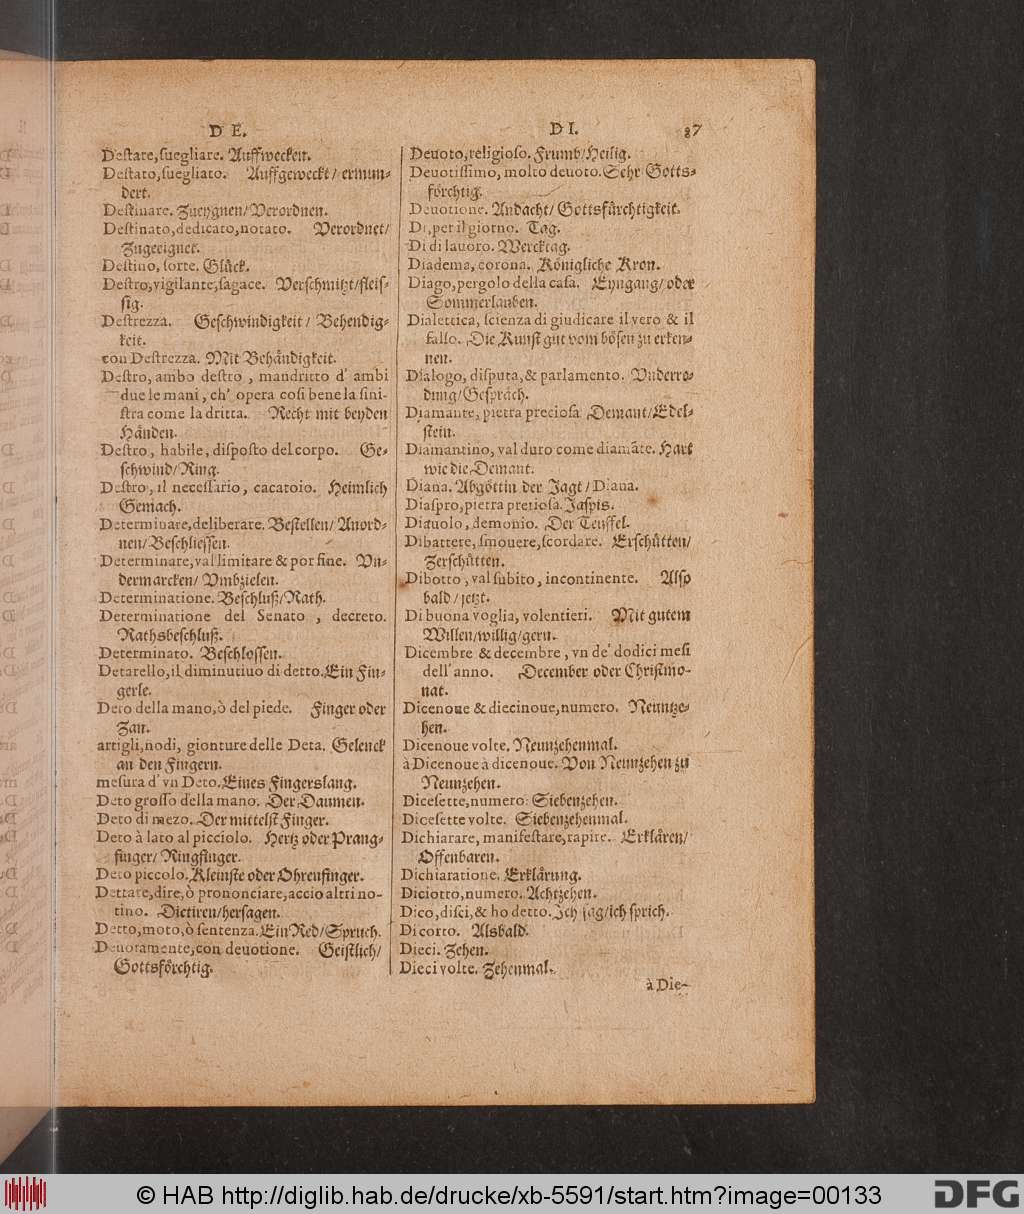 D E.
Destare, suegliare. Auffwecken.
Destato, suegliato. Auffgeweckt/ ermun-
dert.
Destinare. Zueygnen/ Verordnen.
Destinato, dedicato, notato. Verordnet/
Zugeeignet.
Destino, sorte. Glück.
Destro, vigilante, sagace. Verschmitzt/ fleis-
sig.
Destrezza. Geschwindigkeit/ Behendig-
keit.
con Destrezza. Mit Behändigkeit.
Destro, ambo destro, mandritto d' ambi
due le mani, ch' opera cosi bene la sini-
stra come la dritta. Recht mit beyden
Händen.
Destro, habile, disposto del corpo. Ge-
schwind/ Ring.
Destro, il necessario, cacatoio. Heimlich
Gemach.
Determinare, deliberare. Bestellen/ Anord-
nen/ Beschliessen.
Determinare, val limitare & por fine. Vn-
dermarcken/ Vmbzielen.
Determinatione. Beschluß/ Rath.
Determinatione del Senato, decreto.
Rathsbeschluß.
Determinato. Beschlossen.
Detarello, il diminutiuo di detto. Ein Fin-
gerle.
Deto della mano, ò del piede. Finger oder
Zan.
artigli, nodi, gionture delle Deta. Gelenck
an den Fingern.
mesura d' vn Deto. Eines Fingerslang.
Deto grosso della mano. Der Daumen.
Deto di mezo. Der mittelst Finger.
Deto à lato al picciolo. Hertz oder Prang-
finger/ Ringfinger.
Deto piccolo. Kleinste oder Ohrenfinger.
Dettare, dire, ò prononciare, accio altri no-
tino. Dictiren/ hersagen.
Detto, moto, ò sentenza. Ein Red/ Spruch.
Deuotamente, con deuotione. Geistlich/
Gottsförchtig.
D I. 87
Deuoto, religioso. Frumb/ Heilig.
Deuotissimo, molto deuoto. Sehr Gotts-
förchtig.
Deuotione. Andacht/ Gottsfürchtigkeit.
Di, per il giorno. Tag.
Di di lauoro. Wercktag.
Diadema, corona. Königliche Kron.
Diago, pergolo della casa. Eyngang/ oder
Sommerlauben.
Dialettica, scienza di giudicare il vero & il
falso. Die Kunst gut vom bösen zu erken-
nen.
Dialogo, disputa, & parlamento. Vnderre-
dung/ Gespräch.
Diamante, pietra preciosa. Demant/ Edel-
stein.
Diamantino, val duro come diamãte. Hart
wie die Demant.
Diana. Abgöttin der Jagt/ Diana.
Diaspro, pietra pretiosa. Jaspis.
Diauolo, demonio. Der Teuffel.
Dibattere, smouere, scordare. Erschütten/
Zerschütten.
Dibotto, val subito, incontinente. Also
bald/ jetzt.
Di buona voglia, volentieri. Mit gutem
Willen/ willig/ gern.
Dicembre & decembre, vn de' dodici mesi
dell' anno. December oder Christmo-
nat.
Dicenoue & diecinoue, numero. Neuntze-
hen.
Dicenoue volte. Neunzehenmal.
à Dicenoue à dicenoue. Von Neunzehen zu
Neunzehen.
Dicesette, numero. Siebenzehen.
Dicesette volte. Siebenzehenmal.
Dichiarare, manifestare, rapire. Erklären/
Offenbaren.
Dichiaratione. Erklärung.
Diciotto, numero. Achtzehen.
Dico, disci, & ho detto. Ich sag/ ich sprich.
Di corto. Alsbald.
Dieci. Zehen.
Dieci volte. Zehenmal.
à Die-
© HAB http://diglib.hab.de/drucke/xb-5591/start.htm?image=00133
DFG